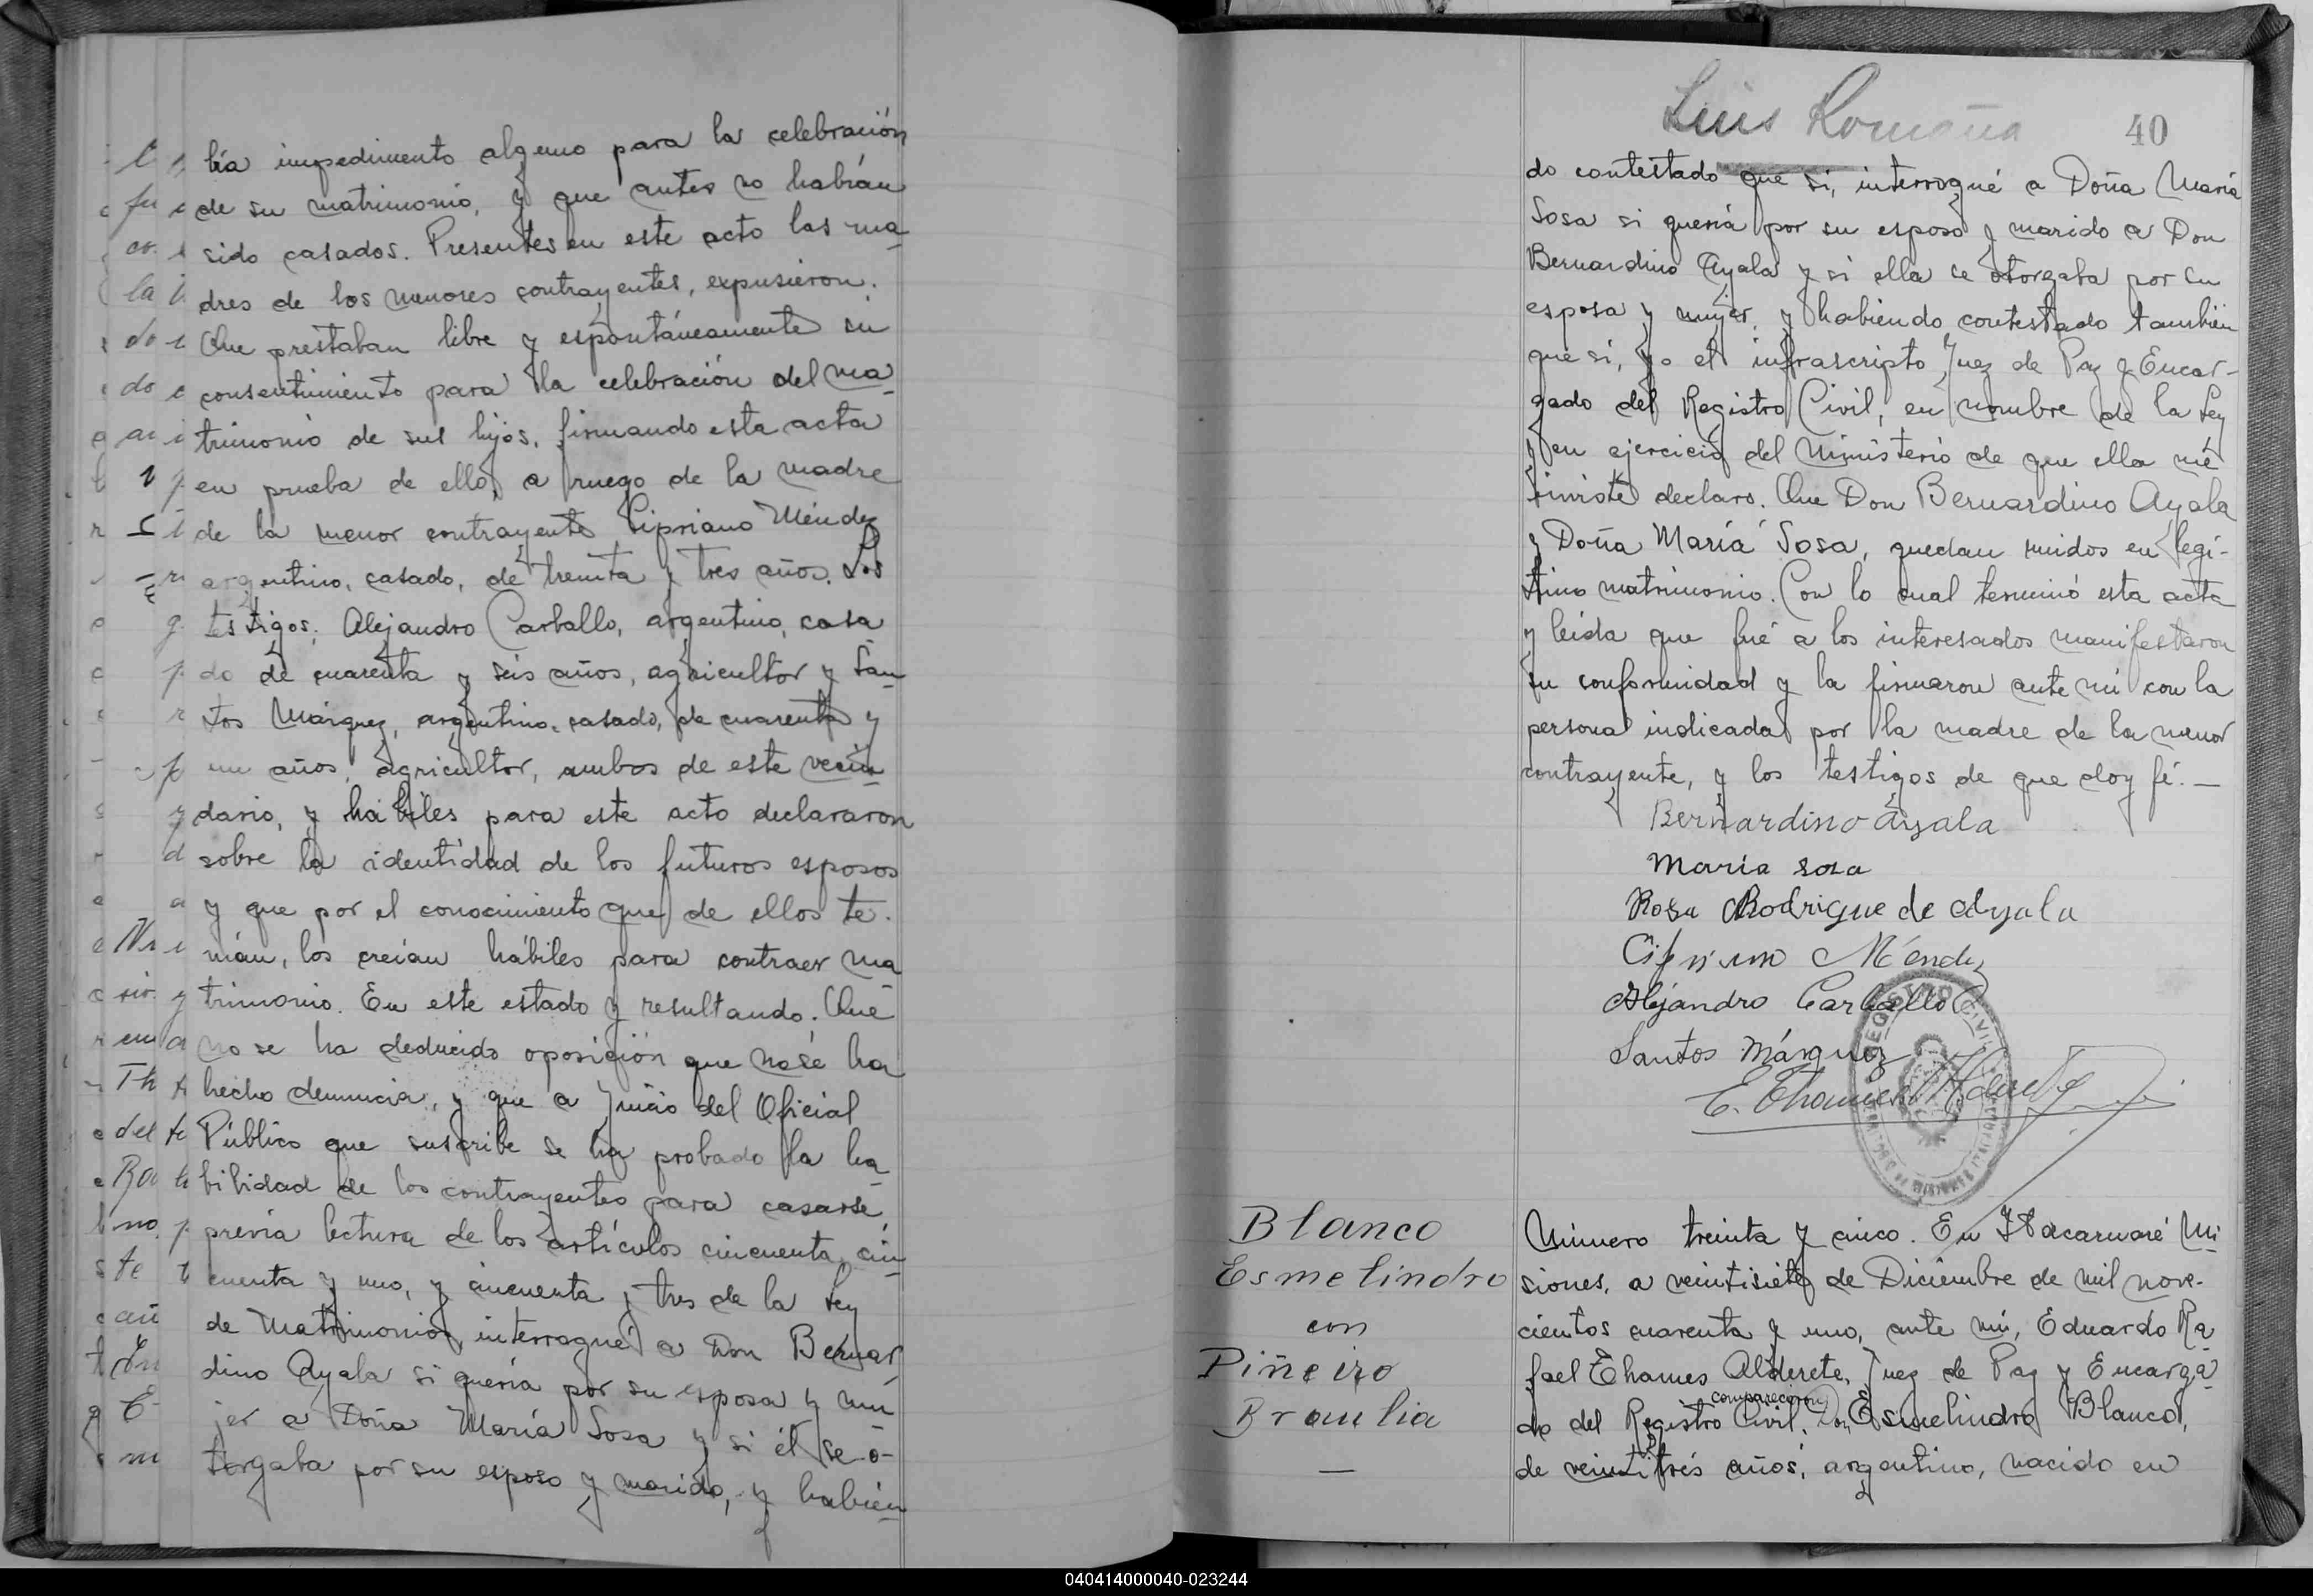 bía impedimento alguno para la celebración
de su matrimonio, y que antes no habían
sido casados. Presentes en este acto las ma-
dres de los menores contrayentes, expusieron:
Que prestaban libre y espontáneamente su
consentimiento para la celebración del ma-
trimonio de sus hijos, firmando esta acta
en prueba de ello, a ruego de la madre
de la menor contrayente Cipriano Méndez
argentino, casado, de treinta y tres años. Los
testigos: Alejandro Carballo, argentino, casa-
do de cuarenta y seis años, agricultor y San-
tos Márquez, argentino, casado, de cuarenta y
un años, agricultor, ambos de este vecin-
dario, y hábiles para este acto declararon
sobre la identidad de los futuros esposos
y que por el conocimiento que de ellos te-
nían, los creían hábiles para contraer ma-
trimonio. En este estado y resultando: Que
no se ha deducido oposición que no sé ha
hecho denuncia, y que a juicio del Oficial
Público que suscribe se ha probado la ha-
bilidad de los contrayentes para casarse
previa lectura de los artículos cincuenta, cin-
cuenta y uno, y cincuenta y tres de la Ley
de Matrimonio, interrogué a Don Bernar-
dino Ayala si quería por su esposa y mu-
jer a Doña María Sosa y si él se o-
torgaba por su esposo y marido, y habién-
Luis Romaña
40
do contestado que si, interrogué a Doña María
Sosa si quería por su esposo y marido a Don
Bernardino Ayala y si ella se otorgaba por su
esposa y mujer, y habiendo contestado también
que sí, yo el infrascripto Juez de Paz y Encar-
gado del Registro Civil, en nombre de la Ley
y en ejercicio del Ministerio de que ella me
inviste declaro: Que Don Bernardino Ayala
y Doña María Sosa, quedan unidos en legí-
timo matrimonio. Con lo cual terminó esta acta
y leída que fué a los interesados manifestaron
su conformidad y la firmaron ante mi con la
persona indicada por la madre de la menor
contrayente, y los testigos de que doy fé. —
Bernardino Ayala
Maria sosa
Rosa Rodrigue de Ayala
Cipriano Méndez
Alejandro Carballo
Santos Márquez
E. Thames Alderete
REGISTRO CIVIL
Blanco
Esmelindro
con
Piñeiro
Braulia
—
Número treinta y cinco. En Itacaruaré Mi-
siones, a veintisiete de Diciembre de mil nove-
cientos cuarenta y uno, ante mí, Eduardo Ra-
fael Thames Alderete, Juez de Paz y Encarga-
do del Registro Civil, comparecieron Don Esmelindro Blanco,
de veintitrés años, argentino, nacido en
040414000040-023244